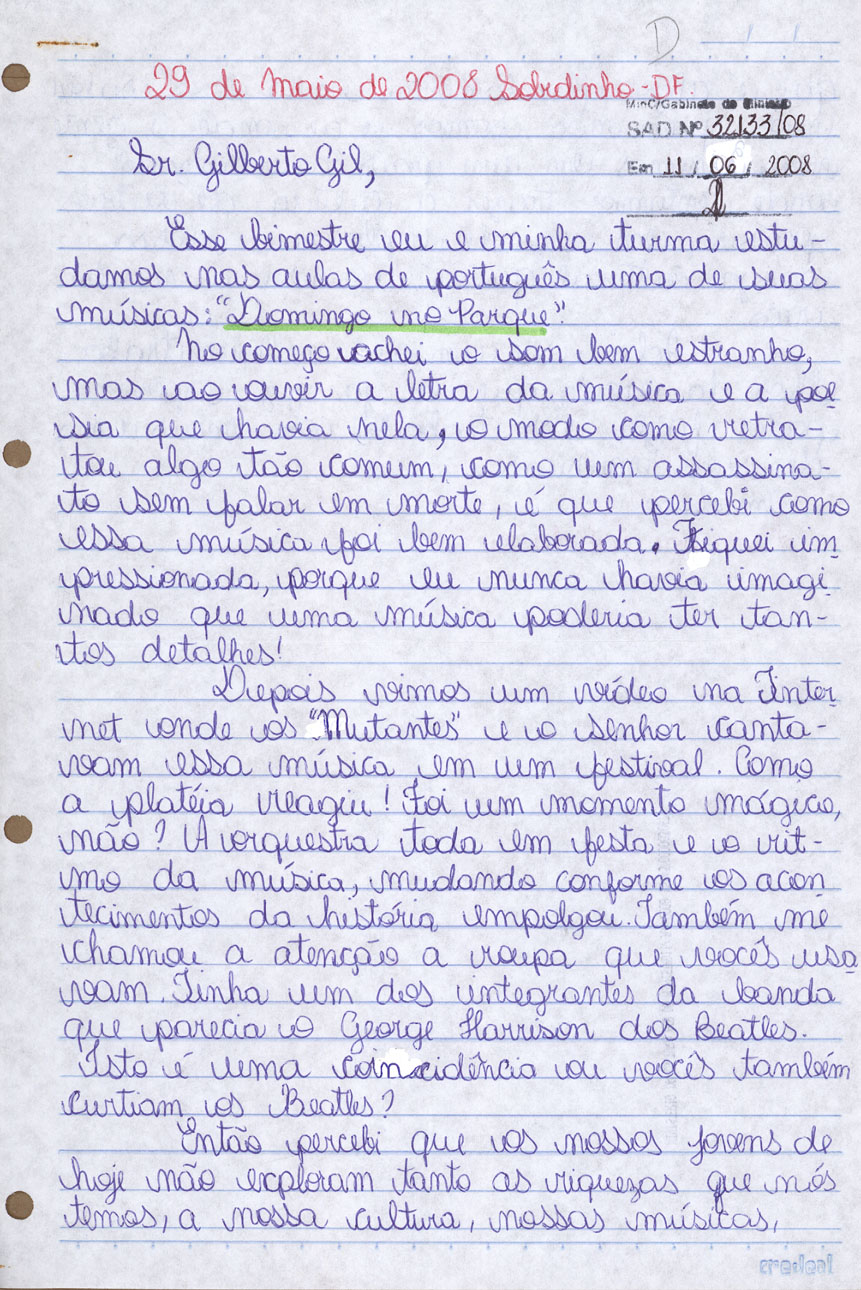 D
29 de Maio de 2008 Sobradinho-DF.
MinC/Gabinete do Ministro
SAD Nº 32133/08
Sr. Gilberto Gil,
Em 11 / 06 / 2008
Esse bimestre eu e minha turma estu-
damos nas aulas de português uma de suas
músicas: "Domingo no Parque".
No começo achei o som bem estranho,
mas ao ouvir a letra da música e a poe
sia que havia nela, o modo como retra-
tou algo tão comum, como um assassina-
to sem falar em morte, é que percebi como
essa música foi bem elaborada. Fiquei im
pressionada, porque eu nunca havia imagi
nado que uma música poderia ter tan-
tos detalhes!
Depois vimos um vídeo na Inter
net onde os "Mutantes" e o senhor canta-
vam essa música em um festival. Como
a platéia reagiu! Foi um momento mágico,
não? A orquestra toda em festa e o rit-
mo da música, mudando conforme os acon
tecimentos da história empolgou. Também me
chamou a atenção a roupa que vocês usa
vam. Tinha um dos integrantes da banda
que parecia o George Harrison dos Beatles.
Isto é uma coincidência ou vocês também
curtiam os Beatles?
Então percebi que os nossos jovens de
hoje não exploram tanto as riquezas que nós
temos, a nossa cultura, nossas músicas,
credeal